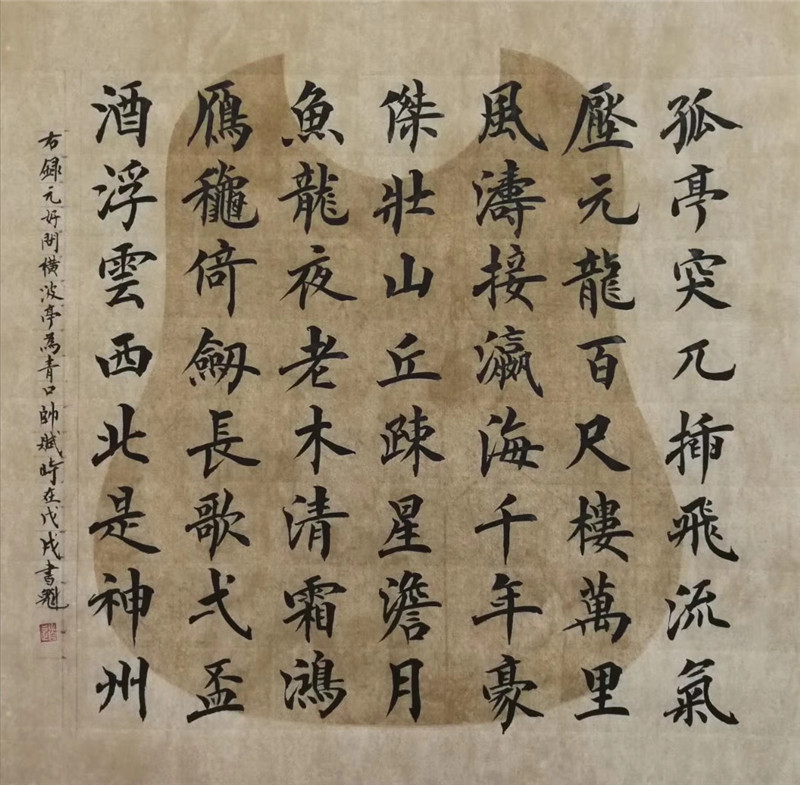 孤亭突兀插飛流氣
壓元龍百尺樓萬里
風濤接瀛海千年豪
傑壯山丘疎星澹月
魚龍夜老木清霜鴻
鴈穐倚劒長歌弌盃
酒浮雲西北是神州
右録元好問橫波亭為青口帥賦時在戊戌書魁